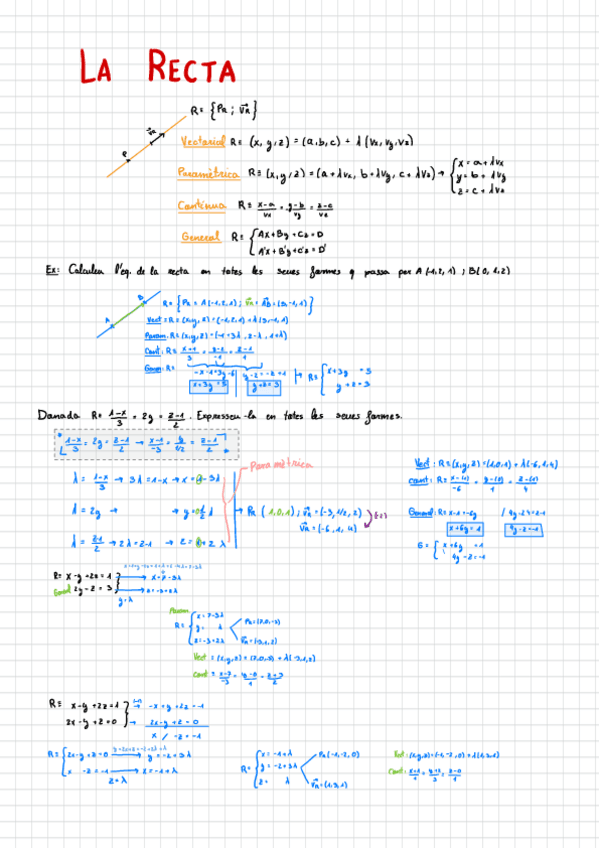 LA RECTA
R ≡ {PR ; VR}
Vectorial R ≡ (x, y, z) = (a, b, c) + λ (Vx, Vy, Vz)
Paramètrica R ≡ (x, y, z) = (a + λVx, b + λVy, c + λVz) → { x = a + λVx
y = b + λVy
z = c + λVz
Contínua R ≡ x-a/Vx = y-b/Vy = z-c/Vz
General R ≡ { Ax + By + Cz = D
A'x + B'y + C'z = D'
Ex: Calculeu l'eq. de la recta en totes les seues formes q passa per A (-1,2,1) ; B( 0,1,2)
A B
R ≡ { PR = A(-1,2,1) ; VR = AB = (3,-1,1) }
Vect ≡ R ≡ (x,y,z) = (-1,2,1) + λ(3,-1,1)
Param: R ≡ (x,y,z) = (-1+3λ, 2-λ, 1+λ)
Cont: R ≡ x+1/3 = y-2/-1 = z-1/1
Gen: R ≡ -x-1=3y-6 | y-2=-z+1 → R ≡ { x+3y = 5
x+3y=5 y+z=3 y+z=3
Donada R ≡ 1-x/3 = 2y = z-1/2 . Expresseu-la en totes les seues formes.
* [ 1-x/3 = 2y = z-1/2 → x-1/-3 = y/1/2 = z-1/2 ] *
Paramètrica
λ = 1-x/3 → 3λ = 1-x → x = 1-3λ
λ = 2y → y = 0 1/2 λ → PR (1,0,1) ; VR = (-3, 1/2, 2)
VR = (-6, 1, 4)
λ = z-1/2 → 2λ = z-1 → z = 1+2λ
Vect: R ≡ (x,y,z) = (1,0,1) + λ(-6,1,4)
Cont: R ≡ x-(1)/-6 = y-(0)/1 = z-(1)/4
General: R ≡ x-1=-6y / 4y-z=-1
x+6y=1 4y-z=-1
G ≡ { x+6y = 1
4y-z=-1
R ≡ x-y+2z=1
General 2y-z=3
y=λ
z=-3+2λ
Param
R ≡ { x = 7-3λ
y = λ
z = -3+2λ
PR = (7,0,-3)
VR = (-3,1,2)
Vect = (x,y,z) = (7,0,-3) + λ(-3,1,2)
Cont = x-7/-3 = y-0/1 = z+3/2
R ≡ x-y+2z=1 → -x+y+2z=-1
2x-y+z=0 → 2x-y+z=0
x / -z = -1
R ≡ { 2x-y+z=0 → y=-2+3λ
x -z=-1 → x=-1+λ
z=λ
R ≡ { x = -1+λ
y = -2+3λ
z = λ
PR (-1,-2,0)
VR = (1,3,1)
Vect: (x,y,z) = (-1,-2,0) + λ(1,3,1)
Cont: x+1/1 = y+2/3 = z-0/1